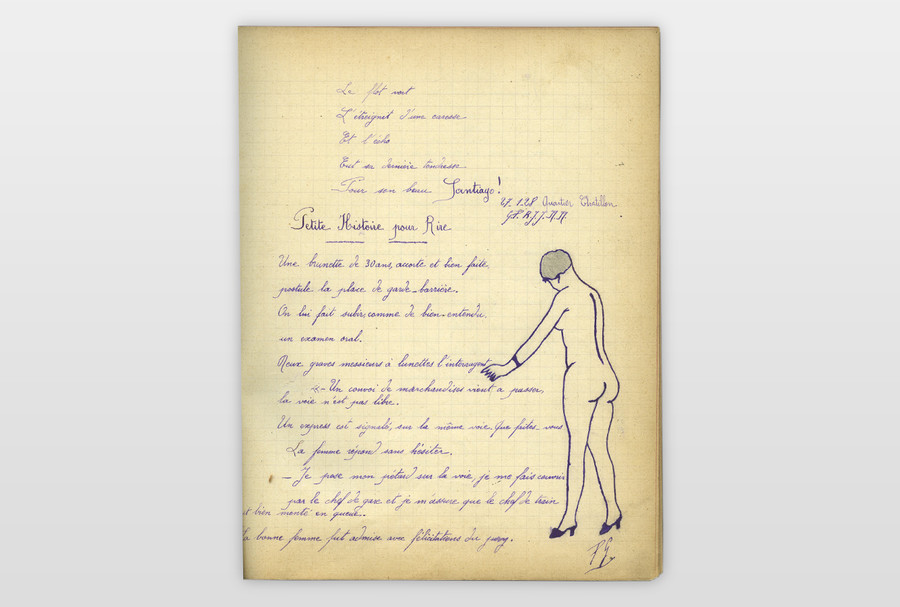 Le flot vert
L'étreignit d'une caresse
Et l'écho
Eut sa dernière tendresse
Pour son beau Santiago!
27.1.28 Quartier Chatillon
Petite Histoire pour Rire
Une brunette de 30 ans, accorte et bien faite,
postule la place de garde-barrière.
On lui fait subir, comme de bien-entendu,
un examen oral.
Deux graves messieurs à lunettes l'interrogent
- Un convoi de marchandises vient à passer,
la voie n'est pas libre.
Un express est signalé, sur la même voie. Que faites-vous
La femme répond sans hésiter.
- Je pose mon pétard sur la voie, je me fais couvrir
par le chef de gare et je m'assure que le chef de train
est bien monté en queue..
La bonne femme fut admise avec félicitations du jury.